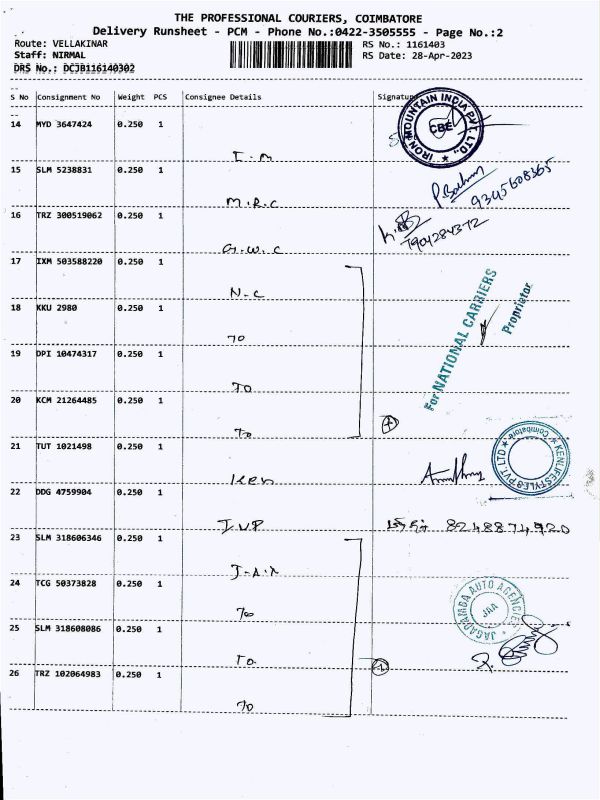 THE PROFESSIONAL COURIERS, COIMBATORE
Delivery Runsheet - PCM - Phone No.:0422-3505555 - Page No.:2
Route: VELLAKINAR RS No.: 1161403
Staff: NIRMAL RS Date: 28-Apr-2023
DRS No.: DCJB116140302
S No Consignment No Weight PCS Consignee Details Signature
14 MYD 3647424 0.250 1
I-M
IRON MOUNTAIN INDIA PVT. LTD.,
CBE
15 SLM 5238831 0.250 1
M.R.C
9345608365
16 TRZ 300519062 0.250 1
G.W.C
7904284372
17 IXM 503588220 0.250 1
N-C
18 KKU 2980 0.250 1
To
19 DPI 10474317 0.250 1
To
20 KCM 21264485 0.250 1
To
4
For NATIONAL CARRIERS
Proprietor
21 TUT 1021498 0.250 1
Ken
KENLIFESTYLES PVT. LTD
Coimbatore
22 DDG 4759904 0.250 1
I.N.P
8248874920
23 SLM 318606346 0.250 1
J-A-A
24 TCG 50373828 0.250 1
To
JAGADAMBA AUTO AGENCIES
JAA
25 SLM 318608086 0.250 1
To
26 TRZ 102064983 0.250 1
To